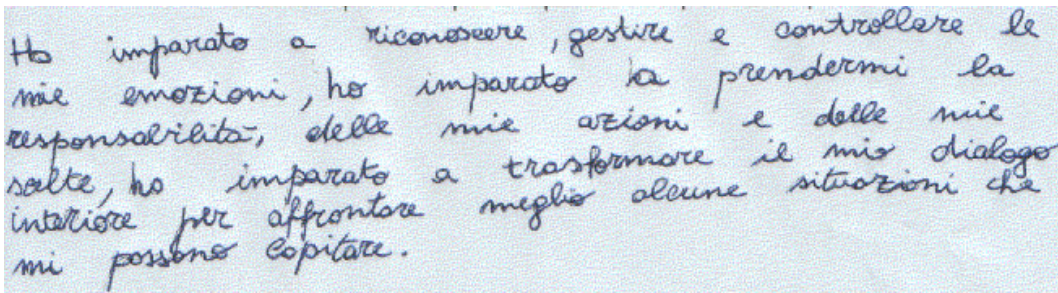 Ho imparato a riconoscere, gestire e controllare le
mie emozioni, ho imparato a prendermi la
responsabilità, delle mie azioni e delle mie
scelte, ho imparato a trasformare il mio dialogo
interiore per affrontare meglio alcune situazioni che
mi possono capitare.